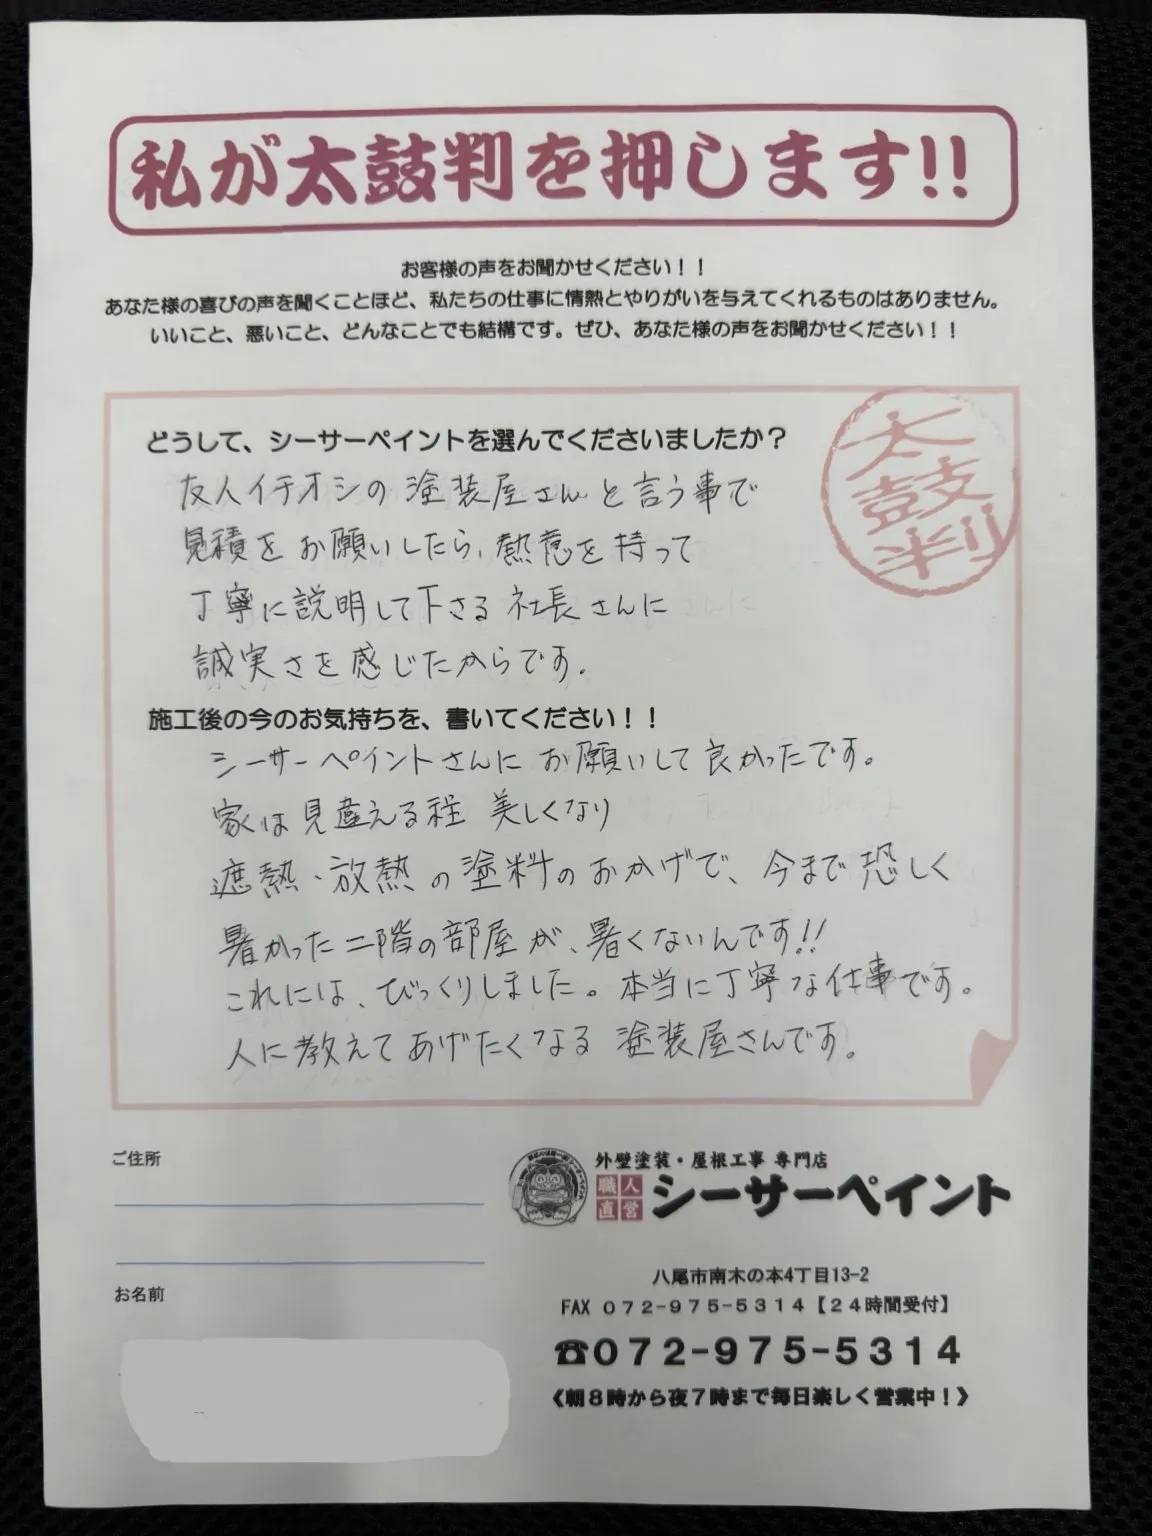 私が太鼓判を押します!!
お客様の声をお聞かせください！！
あなた様の喜びの声を聞くことほど、私たちの仕事に情熱とやりがいを与えてくれるものはありません。
いいこと、悪いこと、どんなことでも結構です。ぜひ、あなた様の声をお聞かせください！！
太鼓判
どうして、シーサーペイントを選んでくださいましたか？
友人イチオシの塗装屋さんと言う事で
見積をお願いしたら、熱意を持って
丁寧に説明して下さる社長さんに
誠実さを感じたからです.
施工後の今のお気持ちを、書いてください！！
シーサーペイントさんにお願いして良かったです。
家は見違える程 美しくなり
遮熱・放熱の塗料のおかげで、今まで恐しく
暑かった二階の部屋が、暑くないんです!!
これには、びっくりしました。本当に丁寧な仕事です。
人に教えてあげたくなる 塗装屋さんです。
ご住所
お名前
外壁塗装・屋根工事 専門店
職人直営 シーサーペイント
八尾市南木の本4丁目13-2
FAX 072-975-5314【24時間受付】
☎072-975-5314
《朝8時から夜7時まで毎日楽しく営業中！》